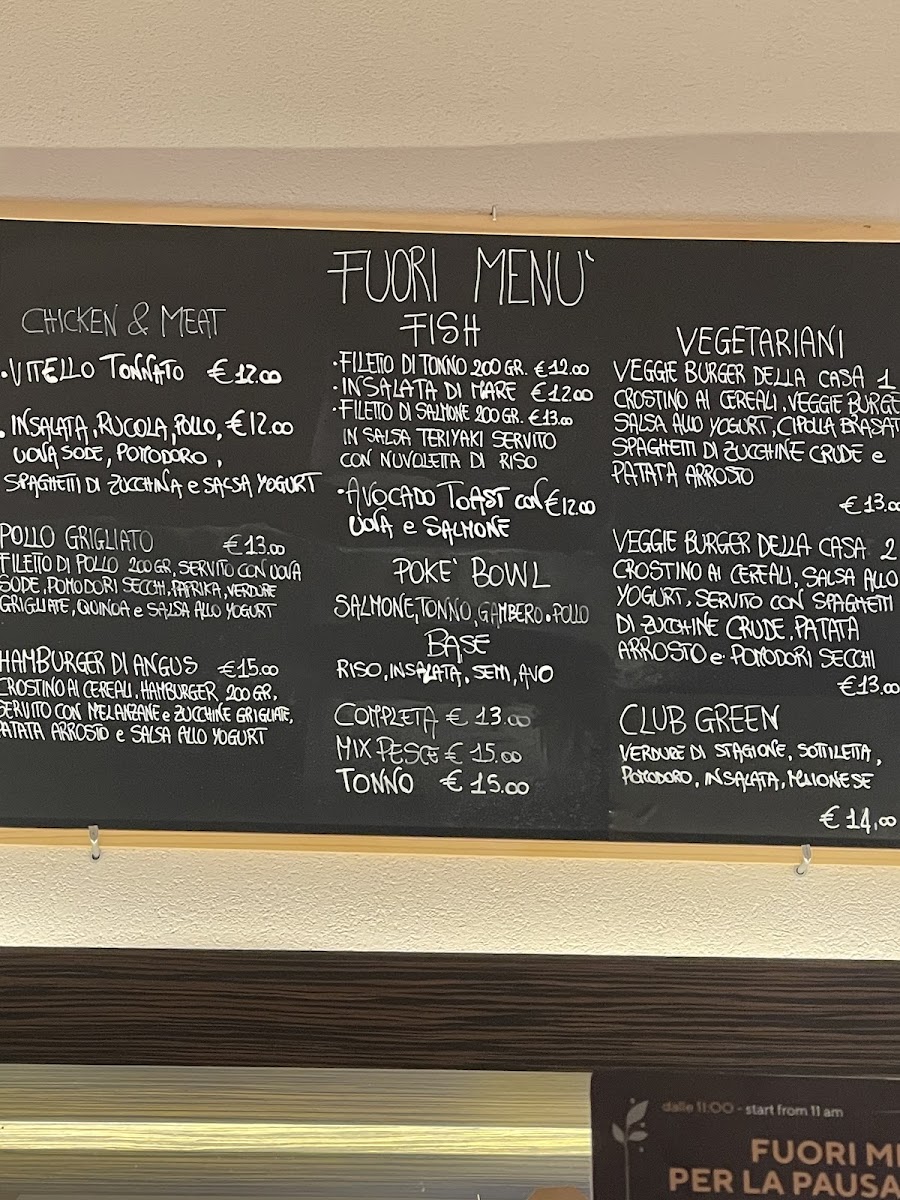 FUORI MENU'
CHICKEN & MEAT
• VITELLO TONNATO €12.00
• INSALATA, RUCOLA, POLLO, €12.00
UOVA SODE, POMODORO,
SPAGHETTI DI ZUCCHINA e SALSA YOGURT
POLLO GRIGLIATO €13.00
FILETTO DI POLLO 200 GR, SERVITO CON UOVA
SODE, POMODORI SECCHI, PAPRIKA, VERDURE
GRIGLIATE, QUINOA e SALSA ALLO YOGURT
HAMBURGER DI ANGUS €15.00
CROSTINO AI CEREALI, HAMBURGER 200 GR,
SERVITO CON MELANZANE e ZUCCHINE GRIGLIATE,
PATATA ARROSTO e SALSA ALLO YOGURT
FISH
• FILETTO DI TONNO 200 GR. €12.00
• INSALATA DI MARE €12.00
• FILETTO DI SALMONE 200 GR. €13.00
IN SALSA TERIYAKI SERVITO
CON NUVOLETTA DI RISO
• AVOCADO TOAST CON €12.00
UOVA e SALMONE
POKE' BOWL
SALMONE, TONNO, GAMBERO, POLLO
BASE
RISO, INSALATA, SEMI, AVO
COMPLETA € 13.00
MIX PESCE € 15.00
TONNO € 15.00
VEGETARIANI
VEGGIE BURGER DELLA CASA 1
CROSTINO AI CEREALI, VEGGIE BURGE
SALSA ALLO YOGURT, CIPOLLA BRASAT
SPAGHETTI DI ZUCCHINE CRUDE e
PATATA ARROSTO
€13.00
VEGGIE BURGER DELLA CASA 2
CROSTINO AI CEREALI, SALSA ALLO
YOGURT, SERVITO CON SPAGHETTI
DI ZUCCHINE CRUDE, PATATA
ARROSTO e POMODORI SECCHI
€13.00
CLUB GREEN
VERDURE DI STAGIONE, SOTTILETTA,
POMODORO, INSALATA, MAIONESE
€ 14,00
dalle 11:00 - start from 11 am
FUORI ME
PER LA PAUSA